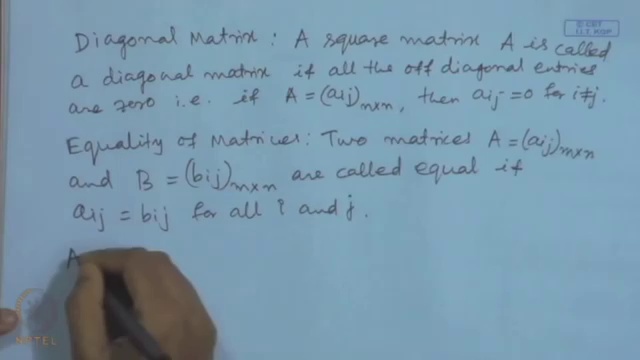 © CET
I.I.T. KGP
Diagonal Matrix : A square matrix A is called
a diagonal matrix if all the off diagonal entries
are zero i.e. if A = (aij)n×n, then aij = 0 for i≠j.
Equality of Matrices: Two matrices A = (aij)m×n
and B = (bij)m×n are called equal if
aij = bij for all i and j.
A
NPTEL